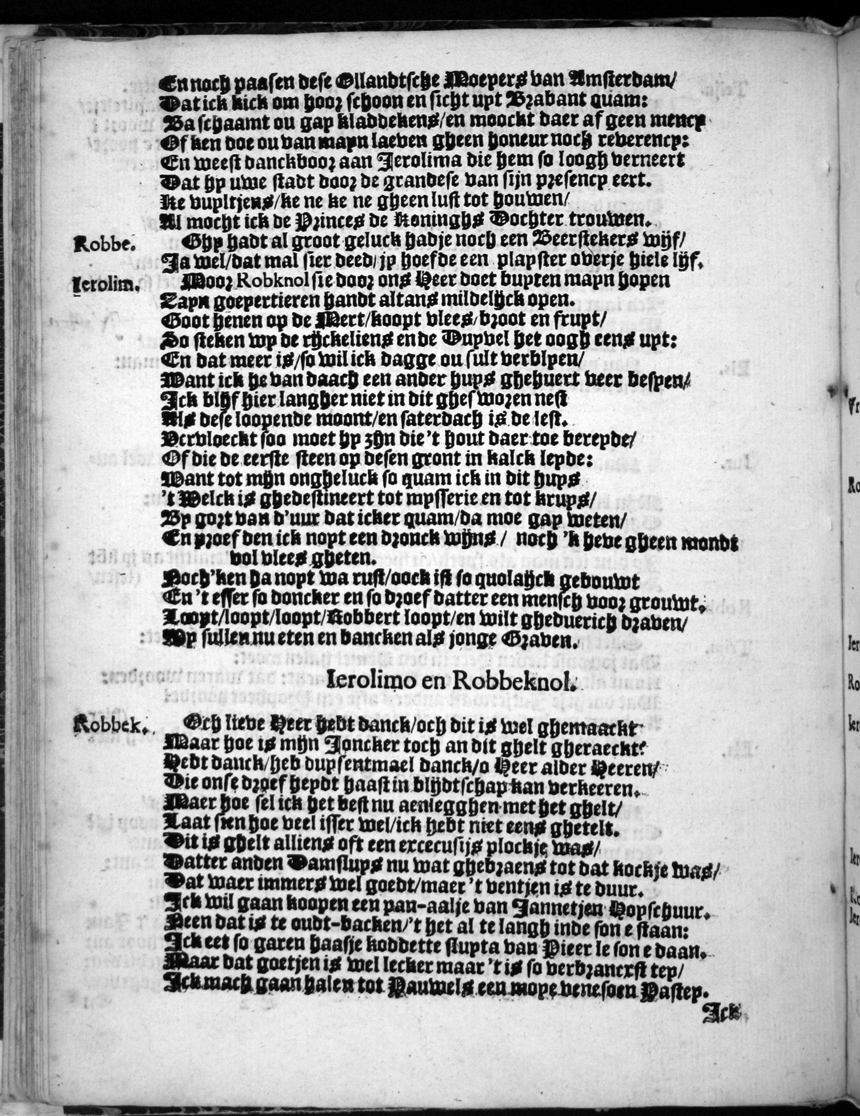 En noch paasen dese Ollandtsche Moepers van Amsterdam/
Dat ick kick om hoor schoon en sicht upt Brabant quam:
Ba schaamt ou gap kladdekens/en moockt daer af geen mency
Of ken doe ou van mayn laeven gheen honeur noch reverency:
En weest danckboor aan Jerolima die hem so loogh verneert
Dat hy uwe stadt door de grandese van sijn presency eert.
Ke vupltjens/ke ne ke ne gheen lust tot houwen/
Al mocht ick de Princes de Koninghs Dochter trouwen.
Robbe. Ghy hadt al groot geluck hadje noch een Beerstekers wijf/
Ja wel/dat mal sier deed/jy hoefde een playster overje hiele lijf.
Ierolim. Moor Robknol sie door ons Heer doet buyten mayn hopen
Zayn goepertieren handt altans mildelijck open.
Goot henen op de Mert/koopt vlees/broot en fruyt/
So steken wy de rijckeliens en de Duyvel het oogh eens uyt:
En dat meer is/so wil ick dagge ou sult verblyen/
Want ick he van daach een ander huys ghehuert veer besyen/
Ick blijf hier langher niet in dit ghesworen nest
Als dese loopende moont/en saterdach is de lest.
Vervloeckt soo moet hy zijn die 't hout daer toe bereyde/
Of die de eerste steen op desen gront in kalck leyde:
Want tot mijn ongheluck so quam ick in dit huys
't Welck is ghedestineert tot mysserie en tot kruys/
By gort van d'uur dat icker quam/da moe gap weten/
En proef den ick noyt een dronck wijns/ noch 'k heve gheen mondt
vol vlees gheten.
Noch'ken ha noyt wa rust/oock ist so quolaijck gebouwt
En 't esser so doncker en so droef datter een mensch voor grouwt.
Loopt/loopt/loopt/Robbert loopt/en wilt gheduerich draven/
Wy sullen nu eten en bancken als jonge Graven.
Ierolimo en Robbeknol.
Robbek. Och lieve Heer hebt danck/och dit is wel ghemaackt
Maar hoe is mijn Joncker toch an dit ghelt gheraeckt?
Hebt danck/heb duysentmael danck/o Heer alder Heeren/
Die onse droefheydt haast in blijdtschap kan verkeeren.
Maer hoe sel ick het best nu aenlegghen met het ghelt/
Laat sien hoe veel isser wel/ick hebt niet eens ghetelt.
Dit is ghelt alliens oft een excecusijs plockje was/
Datter anden Damsluys nu wat ghebraens tot dat kockje was/
Dat waer immers wel goedt/maer 't ventjen is te duur.
Ick wil gaan koopen een pan-aalje van Jannetjen Hopschuur.
Neen dat is te oudt-backen/'t het al te langh inde son e staan:
Ick eet so garen haasje koddette slupta van Pieer le son e daan.
Maar dat goetjen is wel lecker maar 't is so verbrancxst tey/
Ick mach gaan halen tot Pauwels een moye venesoen Pastey.
Ick